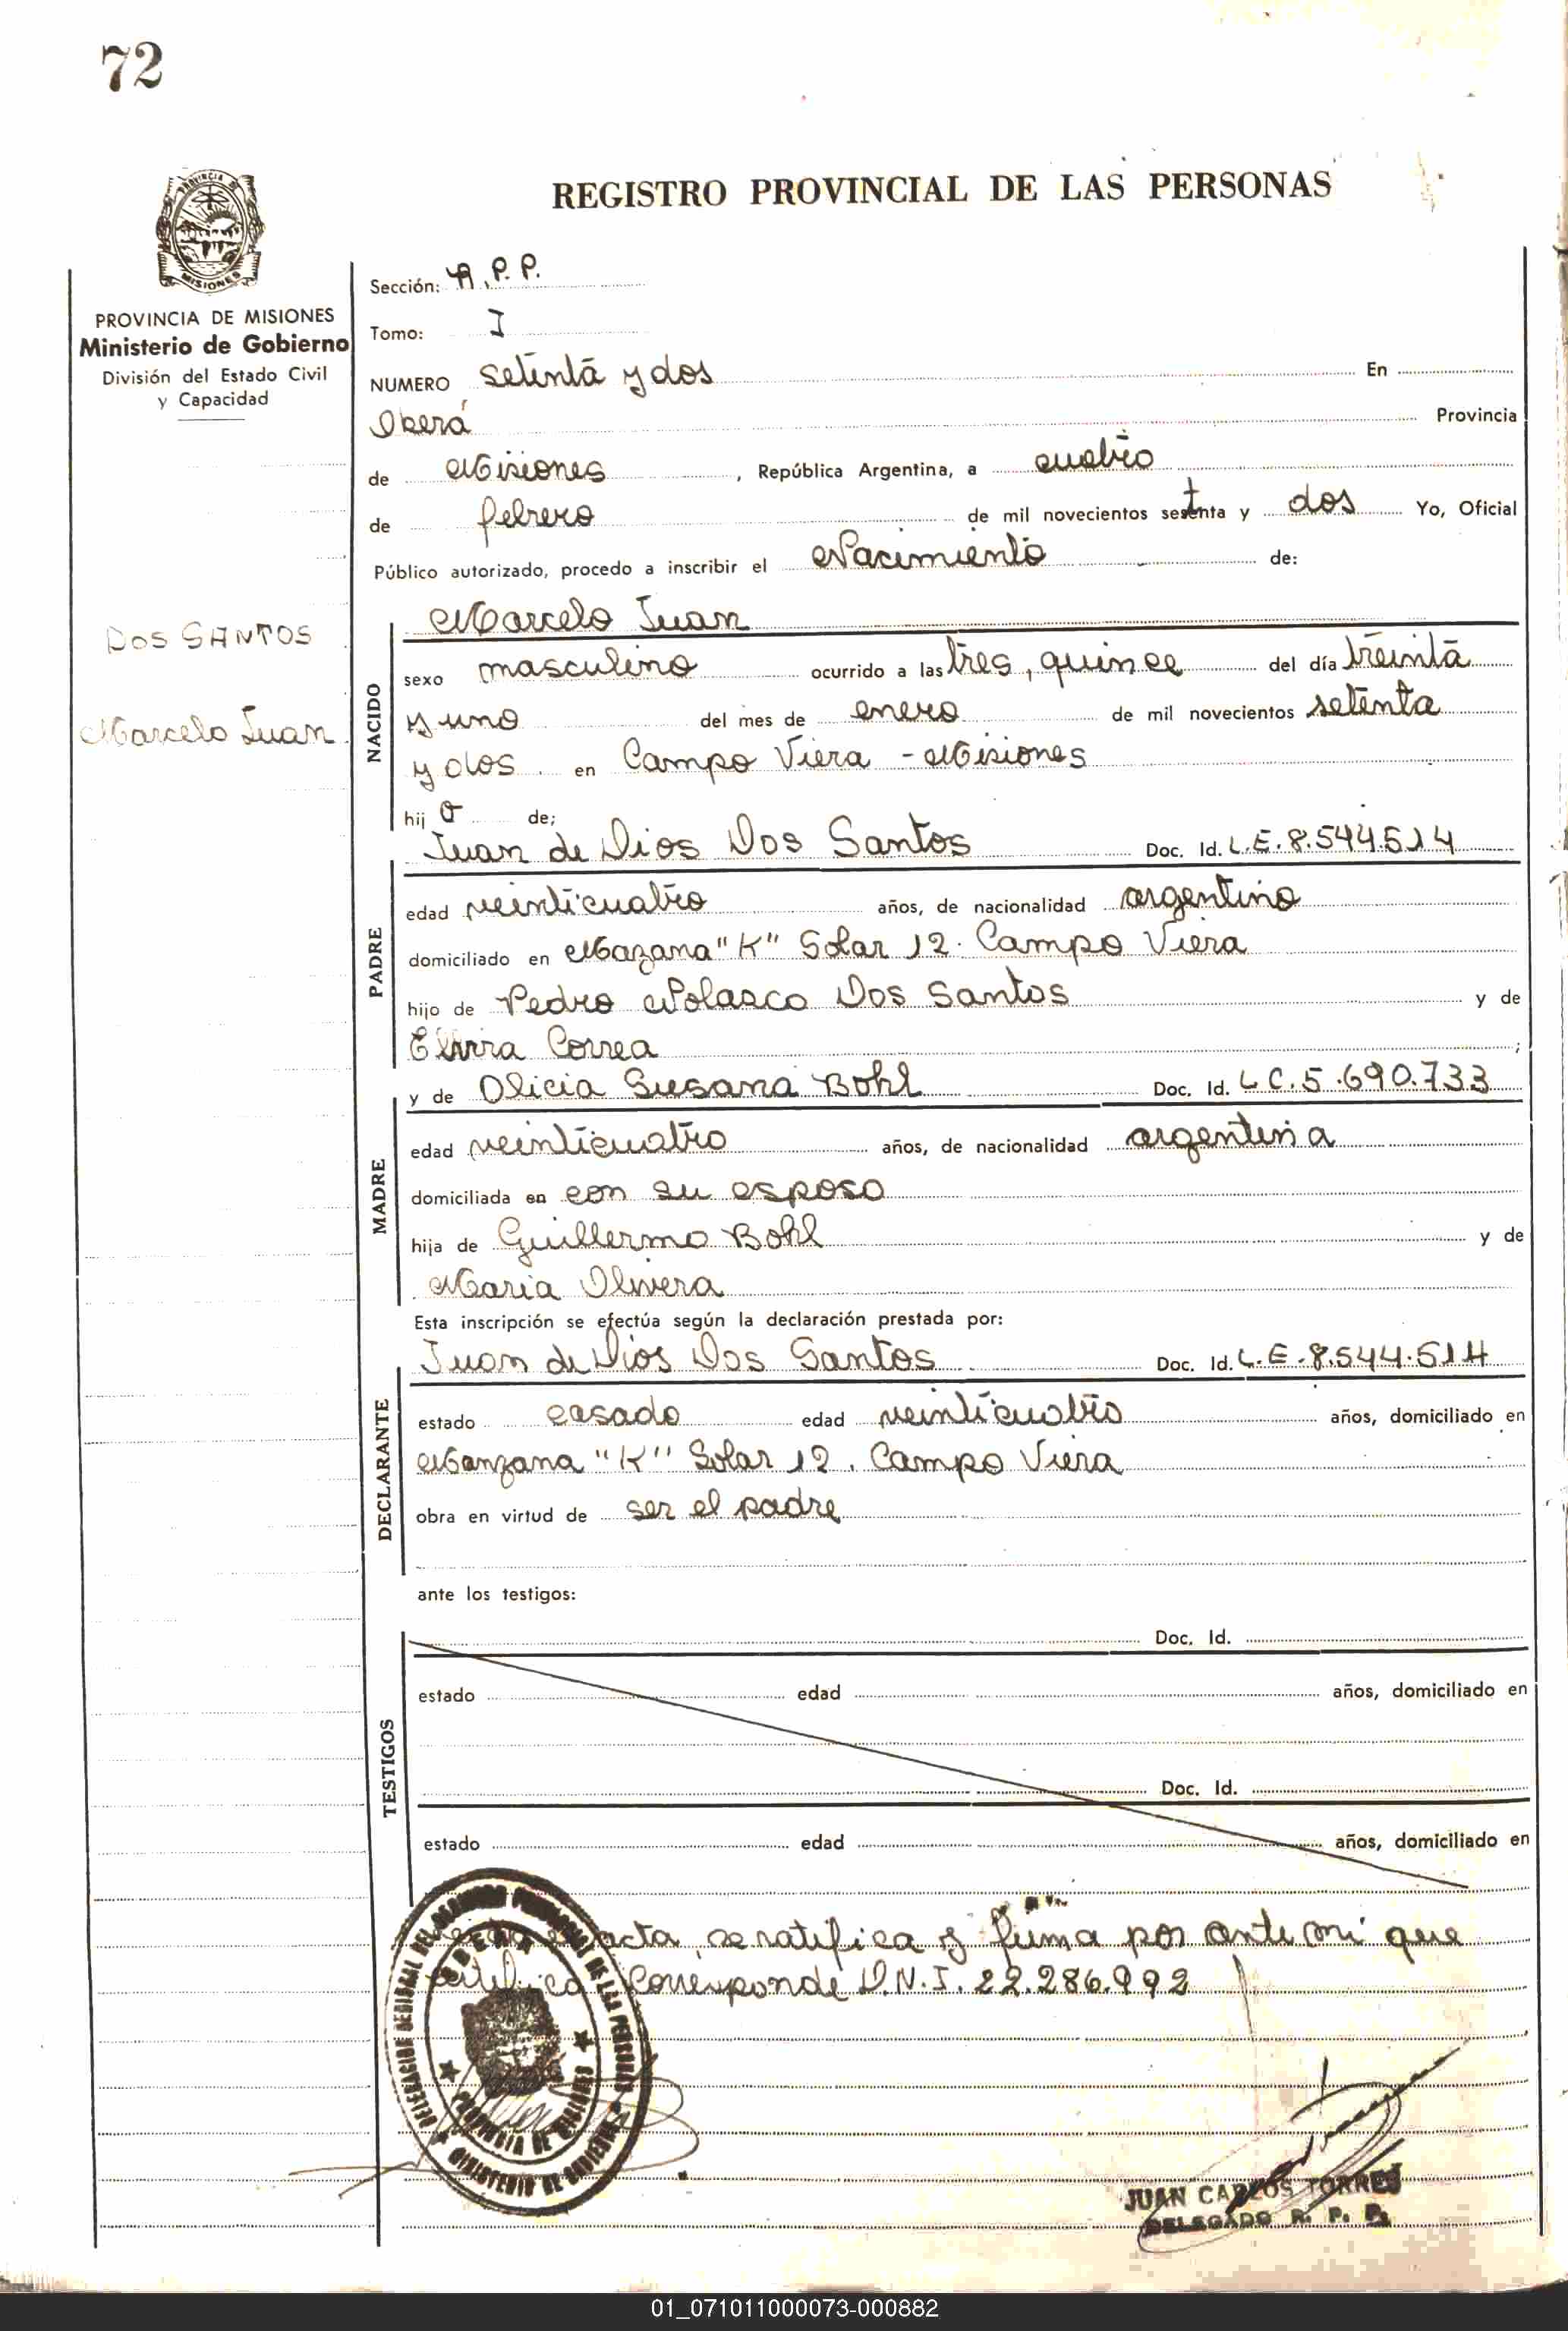 72
REGISTRO PROVINCIAL DE LAS PERSONAS
PROVINCIA DE
MISIONES
PROVINCIA DE MISIONES
Ministerio de Gobierno
División del Estado Civil
y Capacidad
DOS SANTOS
Marcelo Juan
Sección: R.P.P.
Tomo: I
NUMERO setenta y dos En
Oberá Provincia
de Misiones, República Argentina, a cuatro
de febrero de mil novecientos setenta y dos Yo, Oficial
Público autorizado, procedo a inscribir el Nacimiento de:
NACIDO
Marcelo Juan
sexo masculino ocurrido a las tres, quince del día treinta
y uno del mes de enero de mil novecientos setenta
y dos. en Campo Viera - Misiones
hijo de;
PADRE
Juan de Dios Dos Santos Doc. Id. L.E. 8.544.514
edad veinticuatro años, de nacionalidad argentino
domiciliado en Mazana "K" Solar 12. Campo Viera
hijo de Pedro Nolasco Dos Santos y de
Elvira Correa;
MADRE
y de Olicia Susana Bohl Doc. Id. L C. 5.690.733
edad veinticuatro años, de nacionalidad argentina
domiciliada en con su esposo
hija de Guillermo Bohl y de
Maria Olivera
Esta inscripción se efectúa según la declaración prestada por:
DECLARANTE
Juan de Dios Dos Santos Doc. Id. L.E. 8.544.514
estado casado edad veinticuatro años, domiciliado en
Manzana "K" Solar 12. Campo Viera
obra en virtud de ser el padre
ante los testigos:
TESTIGOS
Doc. Id.
estado edad años, domiciliado en
Doc. Id.
estado edad años, domiciliado en
acta, se ratifica y firma por ante mi que
certifica Corresponde D.N.I. 22.286.992
PROVINCIA DE MISIONES
MINISTERIO DE GOBIERNO
JUAN CARLOS TORRES
DELEGADO R. P. P.
01_071011000073-000882